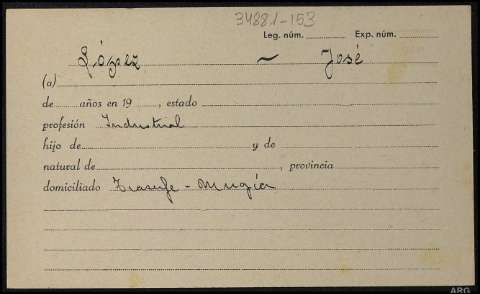 34881-153
Leg. núm. Exp. núm.
López ~ José
(a)
de años en 19 , estado
profesión Industrial
hijo de y de
natural de , provincia
domiciliado Trasufe - Mugía
ARG